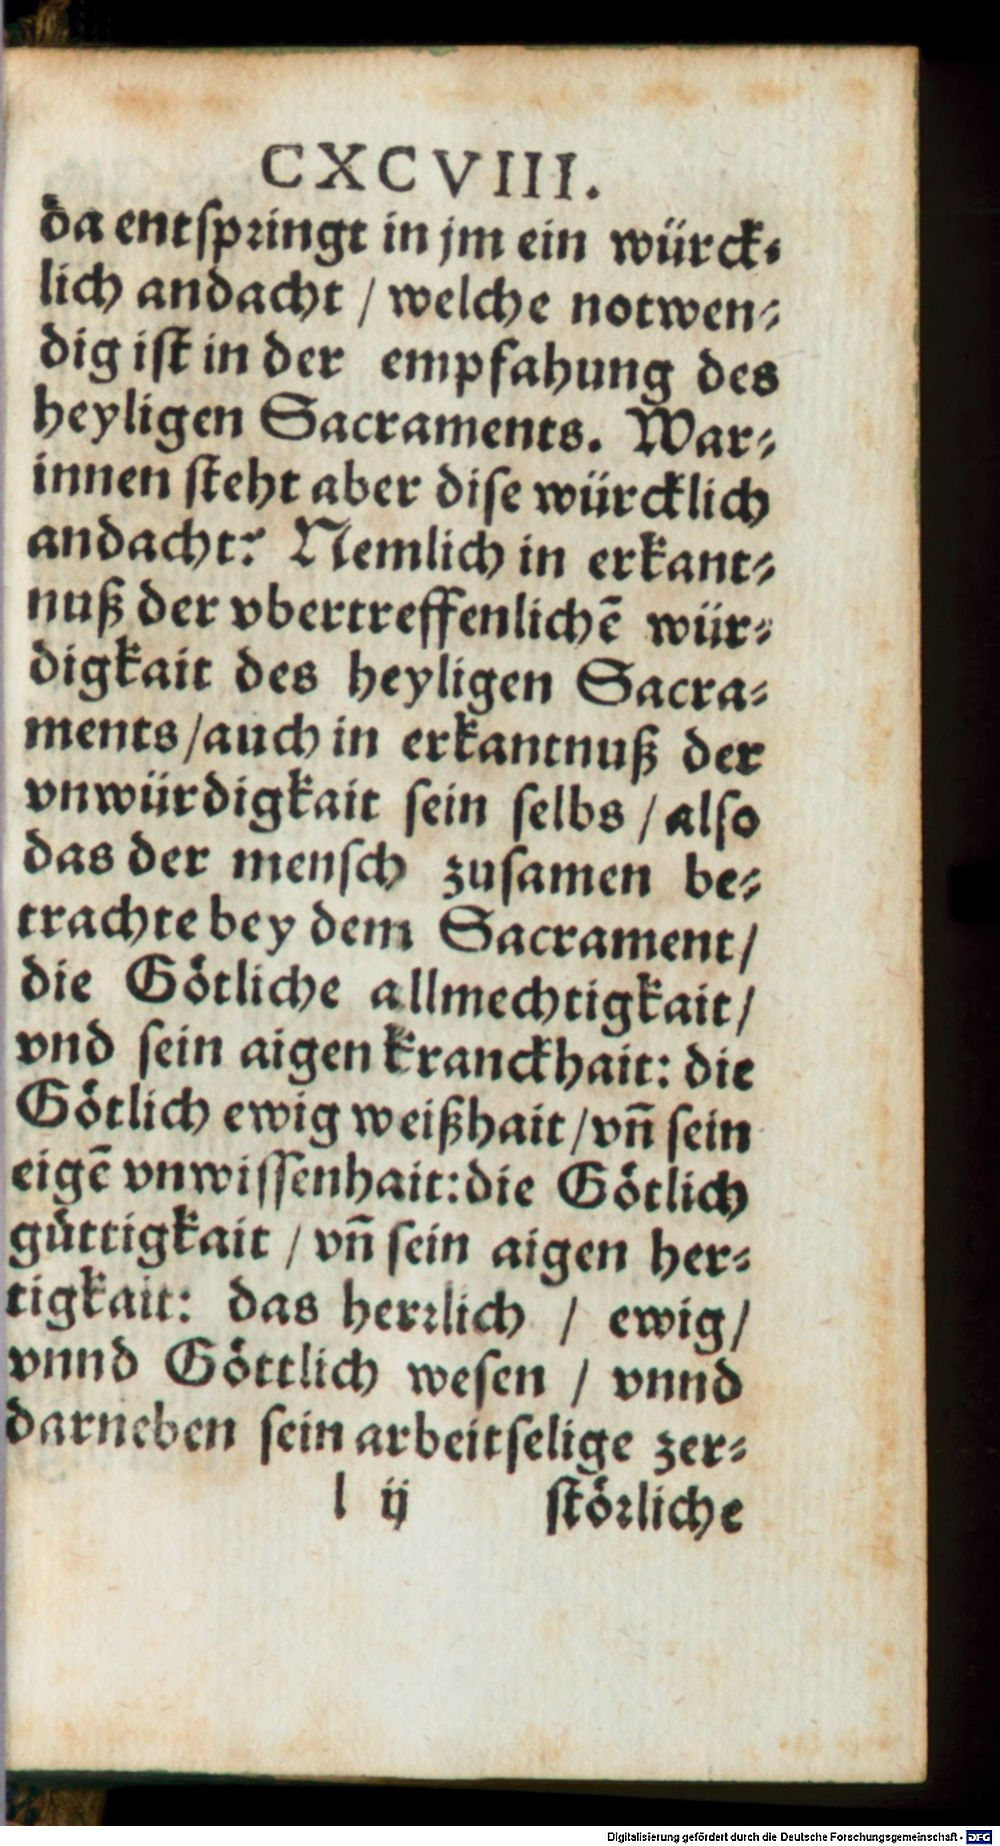 CXCVIII.
da entſpꝛingt in jm ein würck⸗
lich andacht / welche notwen⸗
dig iſt in der empfahung des
heyligen Sacraments. War⸗
innen ſteht aber diſe würcklich
andacht? Nemlich in erkant⸗
nuß der vbertreffenlichē wür⸗
digkait des heyligen Sacra⸗
ments / auch in erkantnuß der
vnwürdigkait ſein ſelbs / alſo
das der menſch zuſamen be⸗
trachte bey dem Sacrament /
die Götliche allmechtigkait /
vnd ſein aigen kranckhait: die
Götlich ewig weißhait / vn̄ ſein
eigē vnwiſſenhait: die Götlich
güttigkait / vn̄ ſein aigen her⸗
tigkait: das herꝛlich / ewig /
vnnd Göttlich weſen / vnnd
darneben ſein arbeitſelige zer⸗
l ij ſtöꝛliche
Digitalisierung gefördert durch die Deutsche Forschungsgemeinschaft - DFG